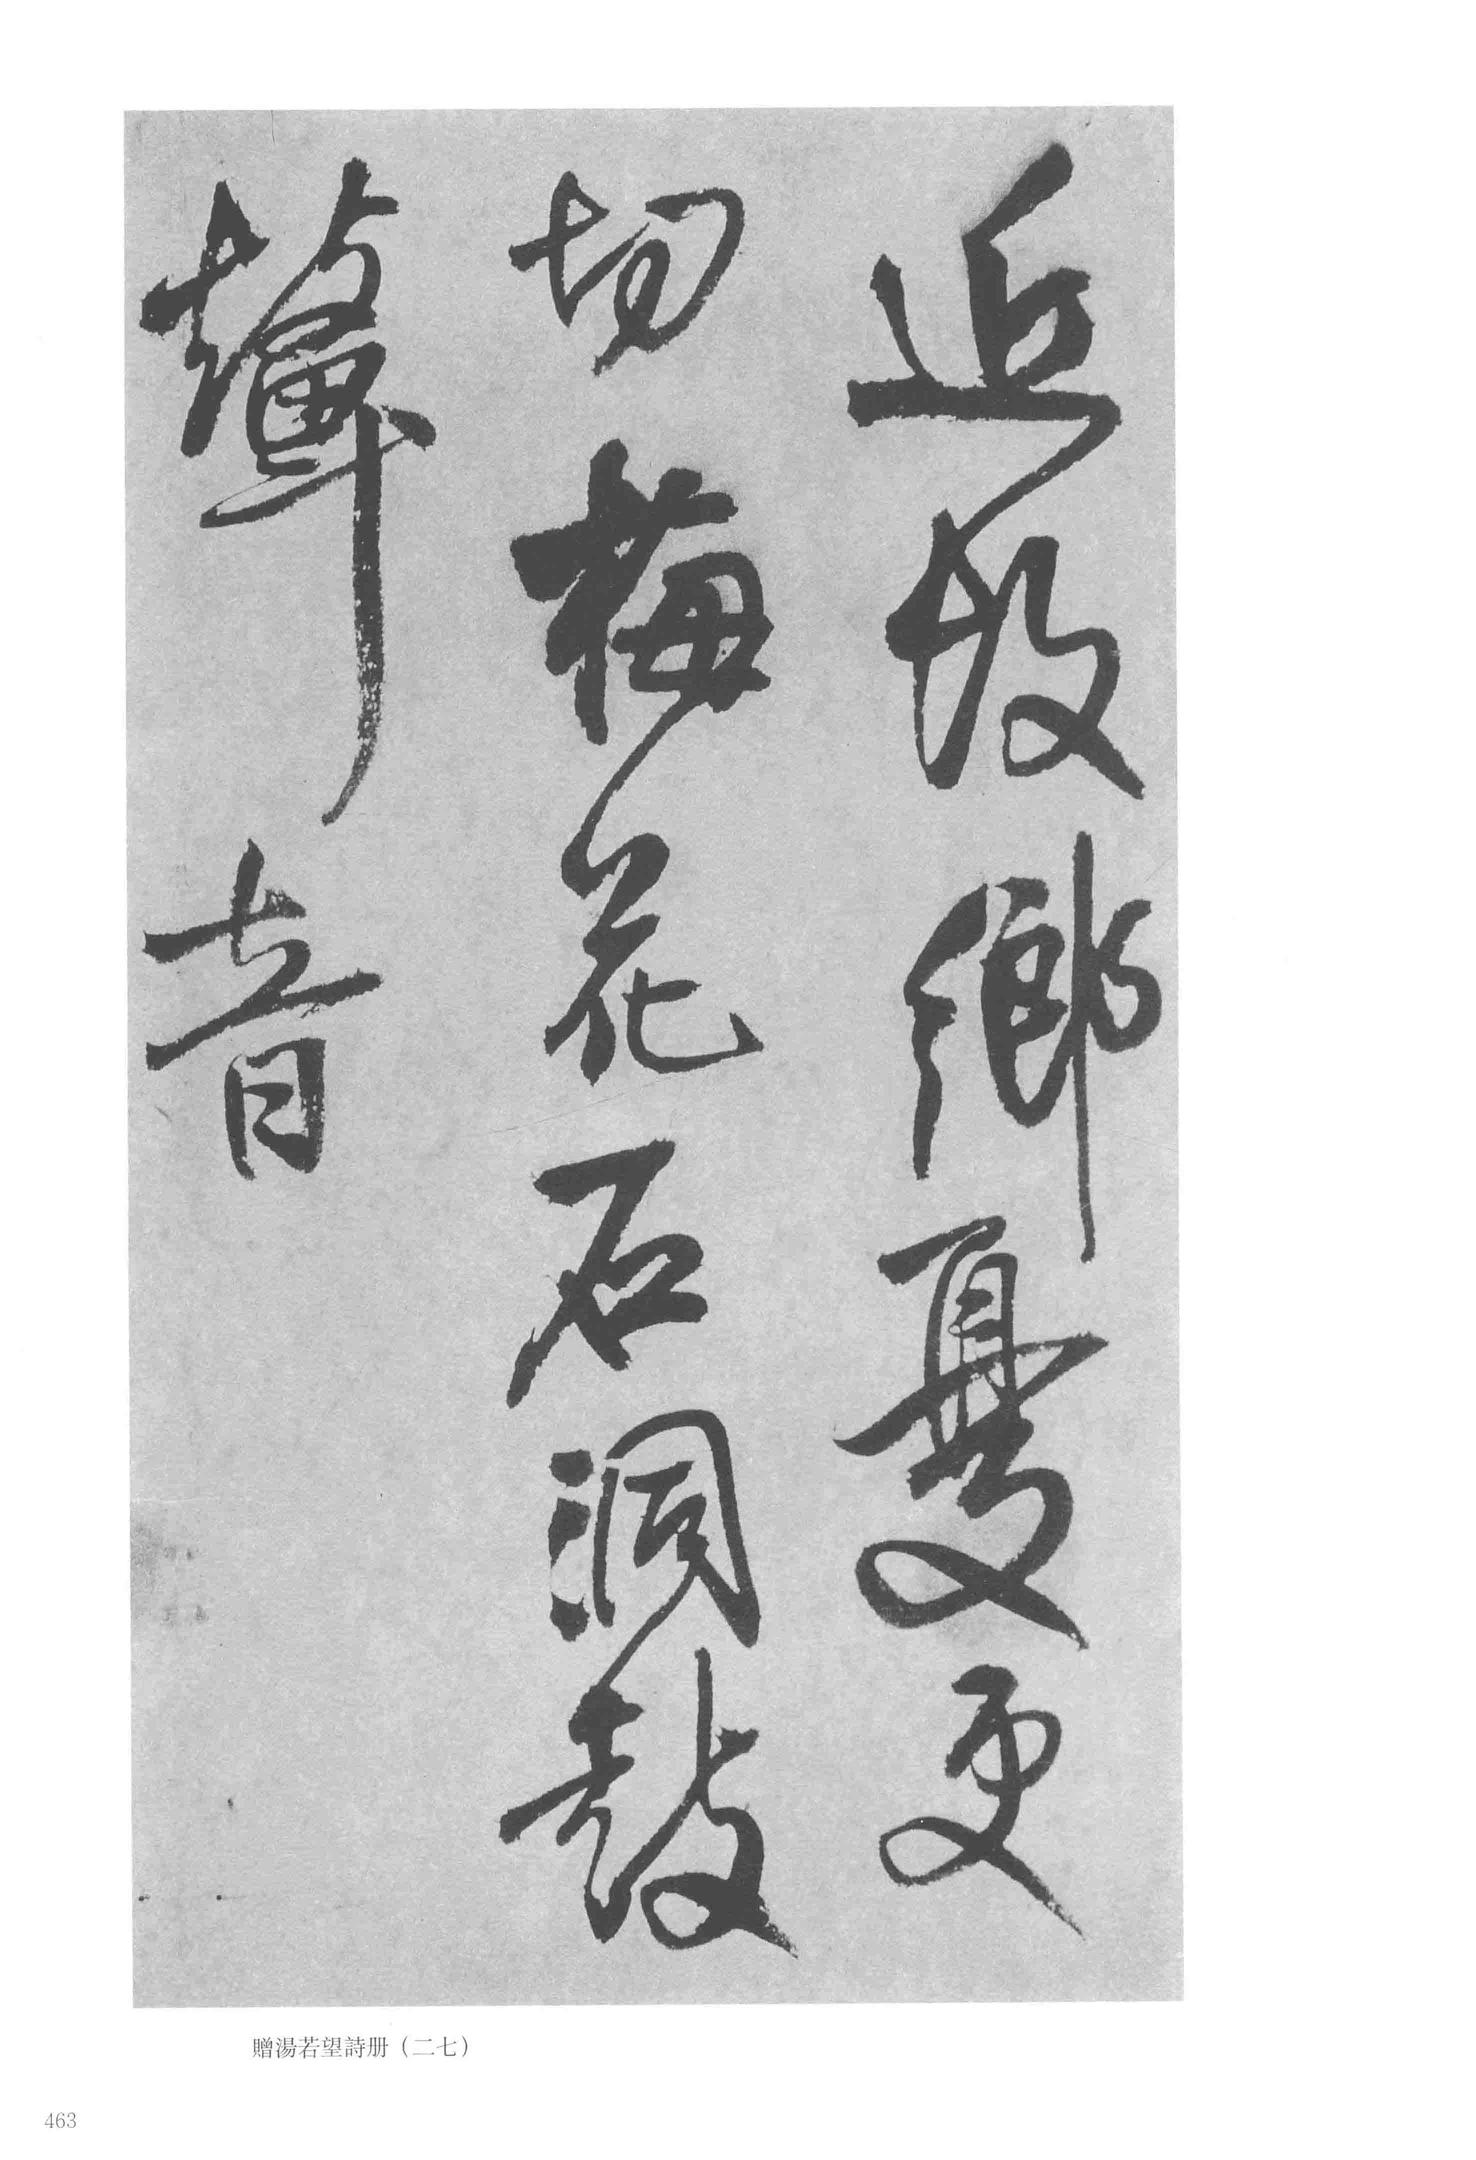 近故鄉憂更
切梅花石洞鼓
聲音
贈湯若望詩册（二七）
463